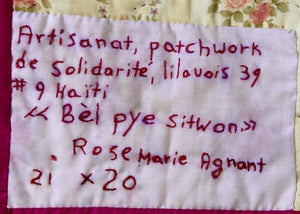 Artisanat, patchwork
de Solidarité, lilavois 39
# 9 Haïti
« Bèl pye sitwon »
. Rose Marie Agnant
21 x 20